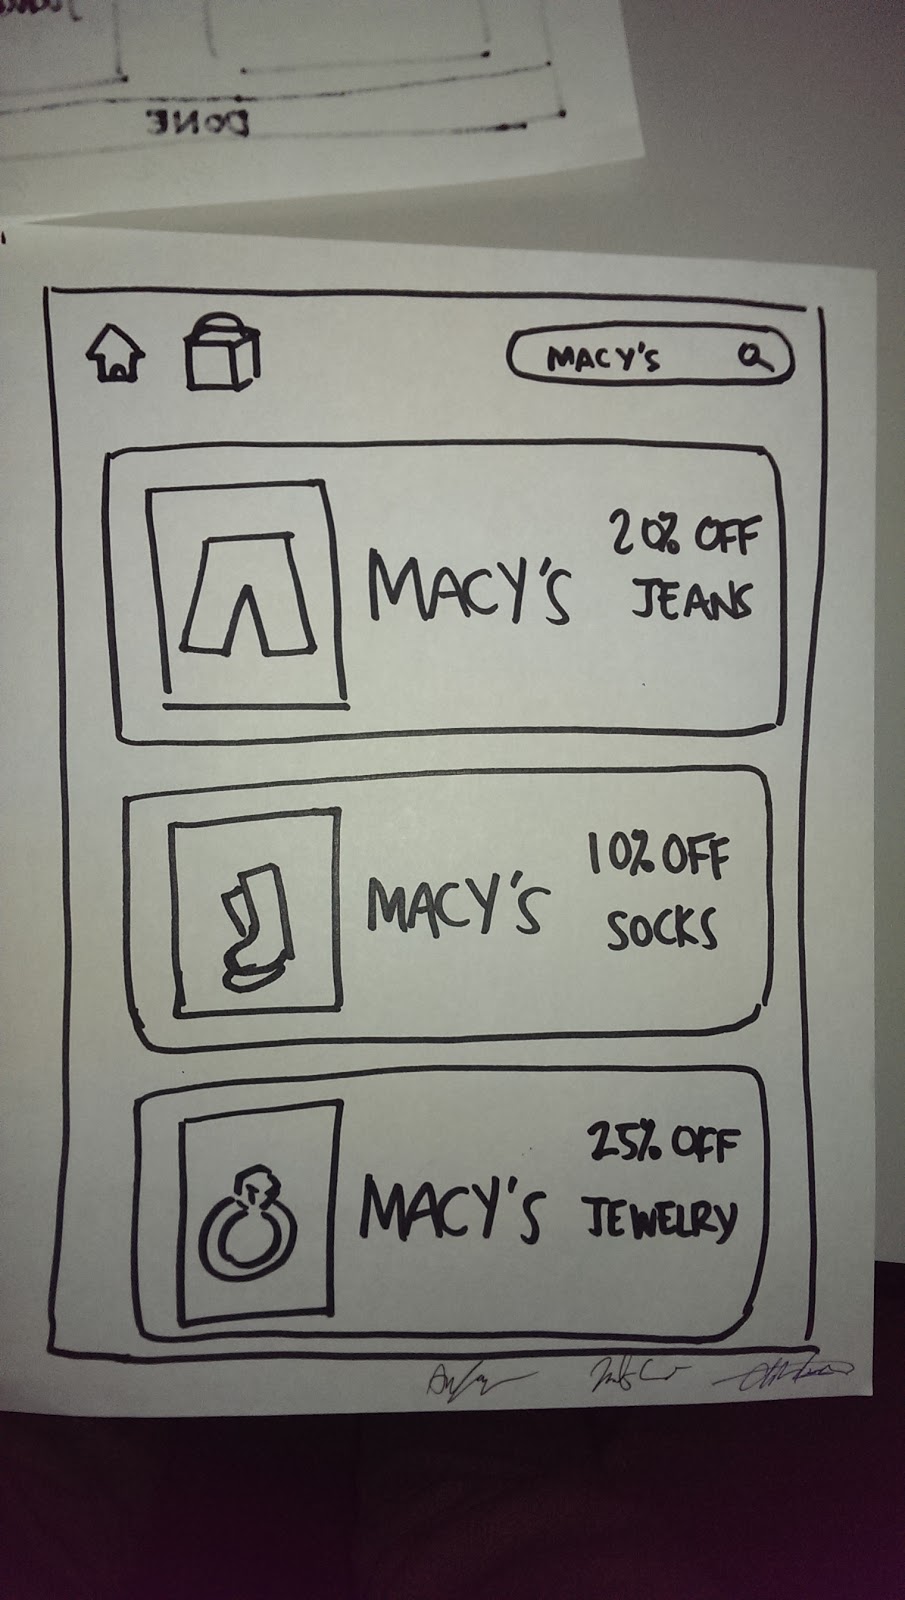 DONE
MACY'S
MACY'S
20% OFF
JEANS
MACY'S
10% OFF
SOCKS
MACY'S
25% OFF
JEWELRY